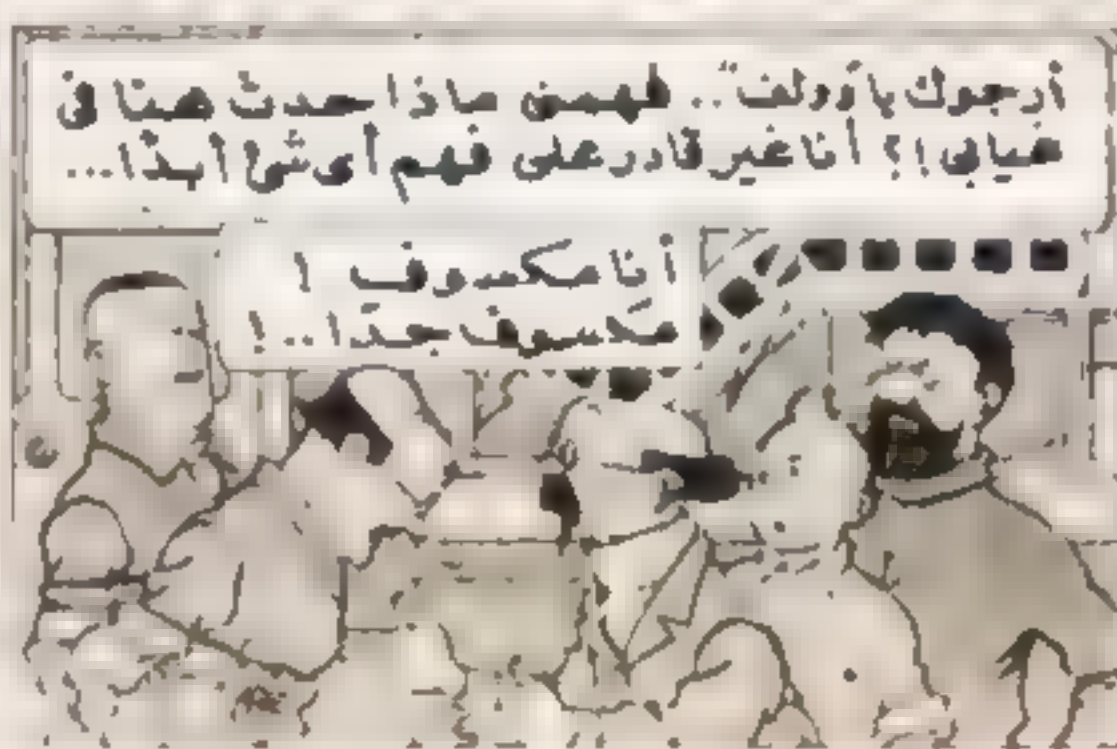 أرجوك يا وولف".. فهمنى ماذا حدث هنا فى
غيابى !؟ أنا غير قادر على فهم أى شئ أبدًا...
أنا مكسوف !
مكسوف جدًا..!